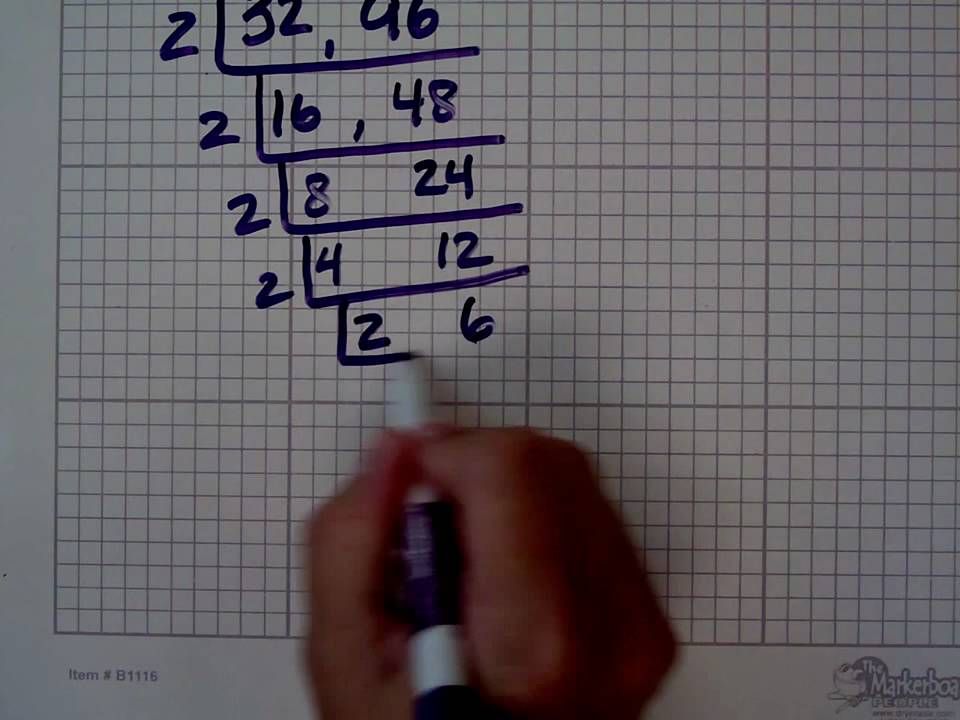 2 32, 96
2 16, 48
2 8 24
2 4 12
2 6
Item # B1116
The
Markerboa
PEOPLE